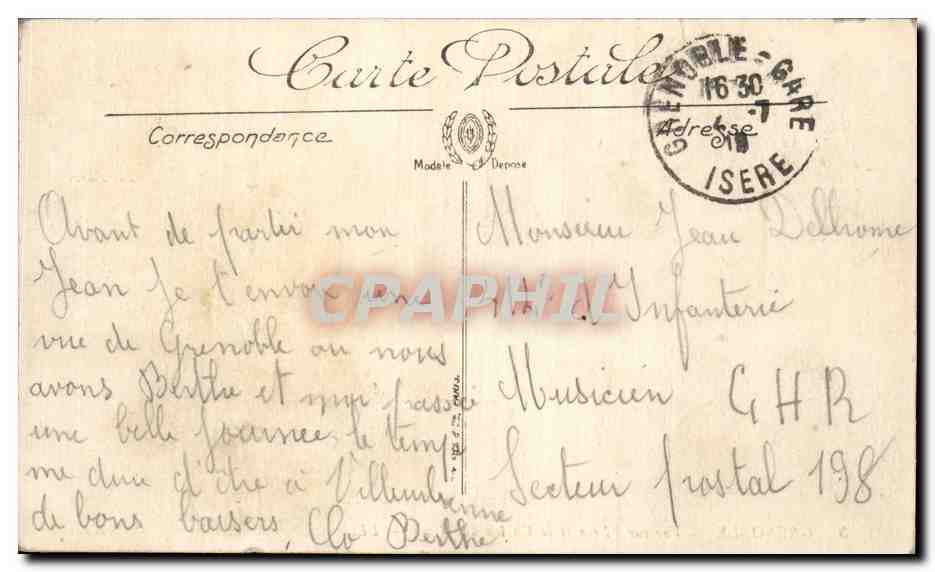 Carte Postale
Correspondance
Modele Depose
Adresse
GRENOBLE - GARE
16 30
-7
19
ISERE
Avant de partir mon
Jean Je t'envoie une
vue de Grenoble ou nous
avons Berthe et moi passée
une belle journée, le temps
me dure d'être à Villeurbanne
de bons baisers, Berthe
Monsieur Jean Delhome
d'Infanterie
Musicien C H R
Secteur postal 198
CPAPHIL